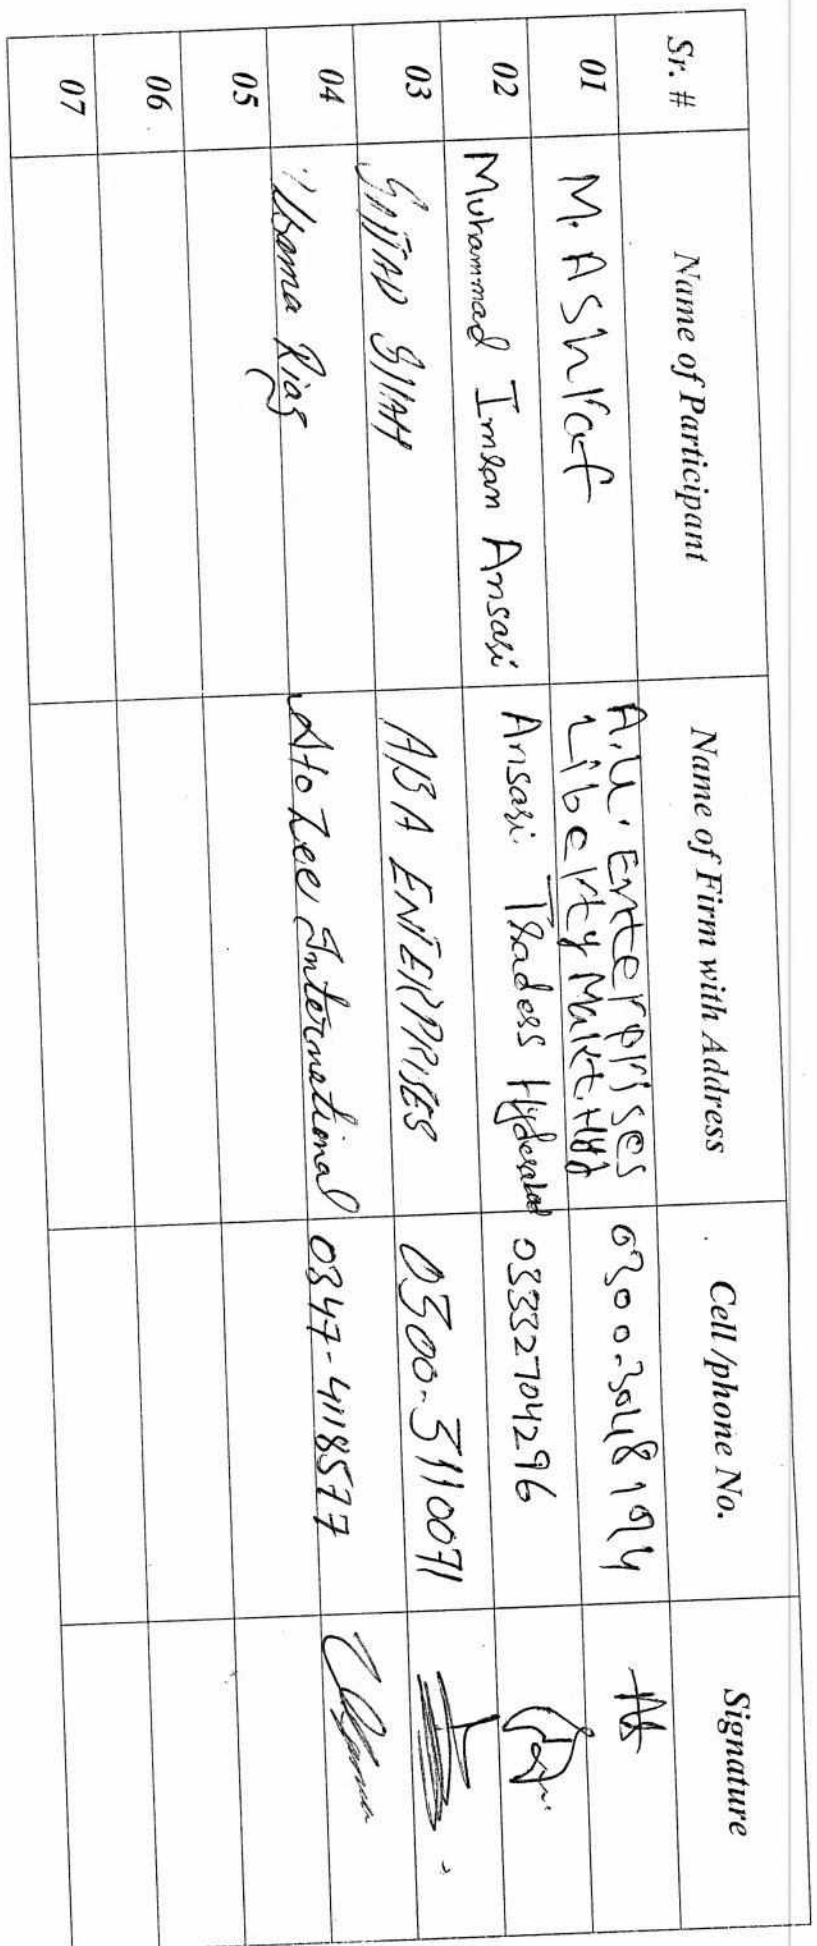 Sr. # Name of Participant Name of Firm with Address Cell /phone No. Signature
01 M. Ashraf A.U. Enterprises
Liberty Markt, Hyd 0300-3048194
02 Muhammad Imran Ansari Ansari Traders Hyderabad 03332704296
03 SAJJAD SHAH ABA ENTERPRISES 0300-3110071
04 Usama Riaz A to Zee International 0347-4118577 Usama
05
06
07